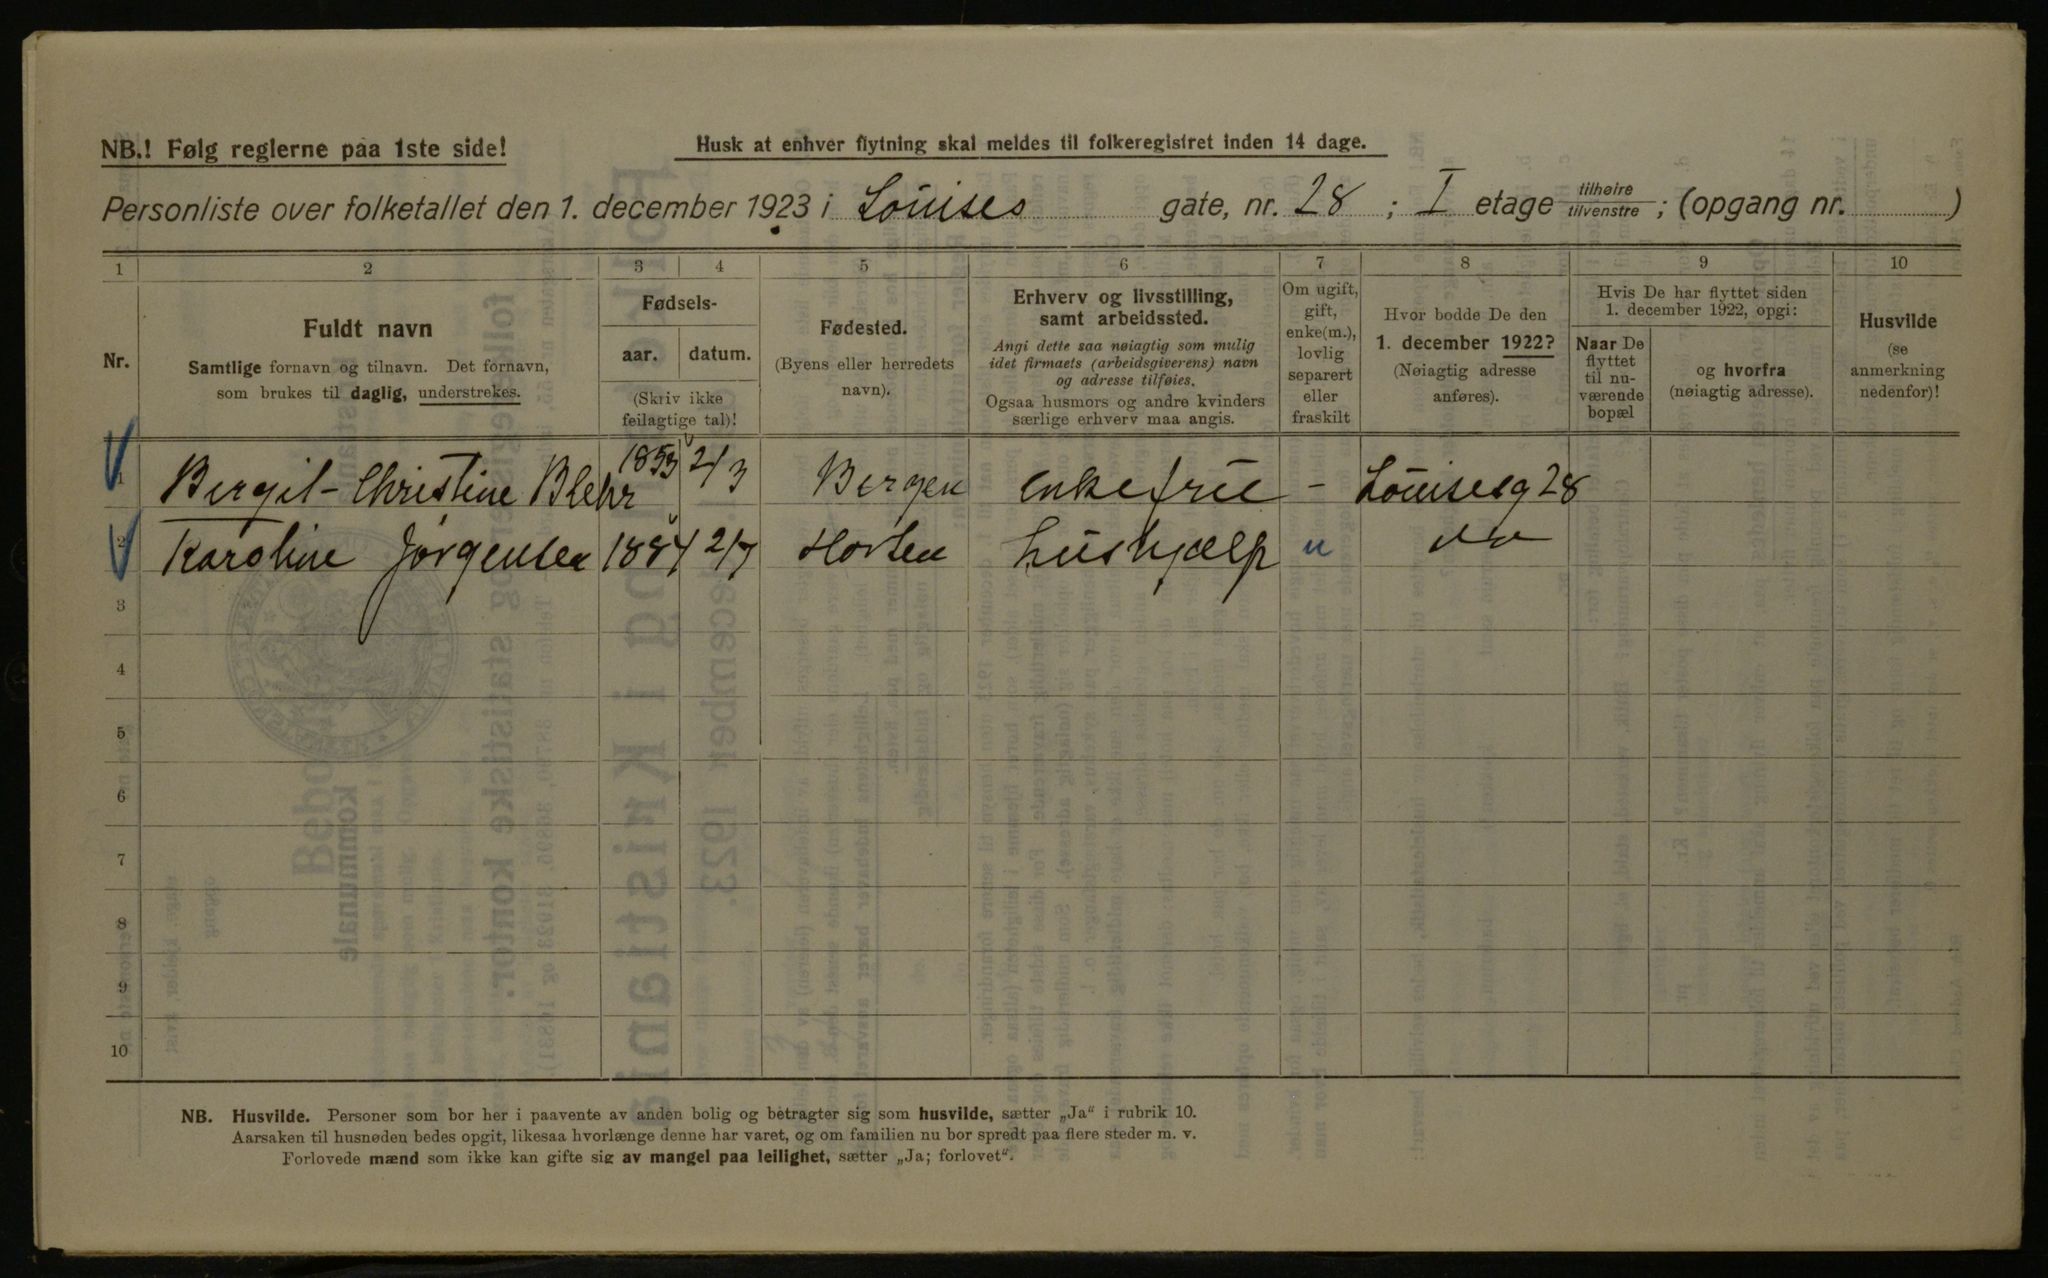 NB.! Følg reglerne paa 1ste side!
Husk at enhver flytning skal meldes til folkeregistret inden 14 dage.
Personliste over folketallet den 1. december 1923 i Louises gate, nr. 28 ; I etage tilhøire tilvenstre ; (opgang nr. )
1 2 3 4 5 6 7 8 9 10
Nr.
Fuldt navn
Samtlige fornavn og tilnavn. Det fornavn,
som brukes til daglig, understrekes.
Fødsels-
aar. datum.
(Skriv ikke
feilagtige tal)!
Fødested.
(Byens eller herredets
navn).
Erhverv og livsstilling,
samt arbeidssted.
Angi dette saa nøiagtig som mulig
idet firmaets (arbeidsgiverens) navn
og adresse tilføies.
Ogsaa husmors og andre kvinders
særlige erhverv maa angis.
Om ugift,
gift,
enke(m.),
lovlig
separert
eller
fraskilt
Hvor bodde De den
1. december 1922?
(Nøiagtig adresse
anføres).
Hvis De har flyttet siden
1. december 1922, opgi:
Naar De
flyttet
til nu-
værende
bopæl
og hvorfra
(nøiagtig adresse).
Husvilde
(se
anmerkning
nedenfor)!
1 Birgit-Christine Blehr 1853 2/3 Bergen enkefrue - Louisesg 28
2 Karoline Jørgensen 1884 2/7 Horten hushjælp u do
3
4
5
6
7
8
9
10
NB. Husvilde. Personer som bor her i paavente av anden bolig og betragter sig som husvilde, sætter „Ja“ i rubrik 10.
Aarsaken til husnøden bedes opgit, likesaa hvorlænge denne har varet, og om familien nu bor spredt paa flere steder m. v.
Forlovede mænd som ikke kan gifte sig av mangel paa leilighet, sætter „Ja; forlovet“.